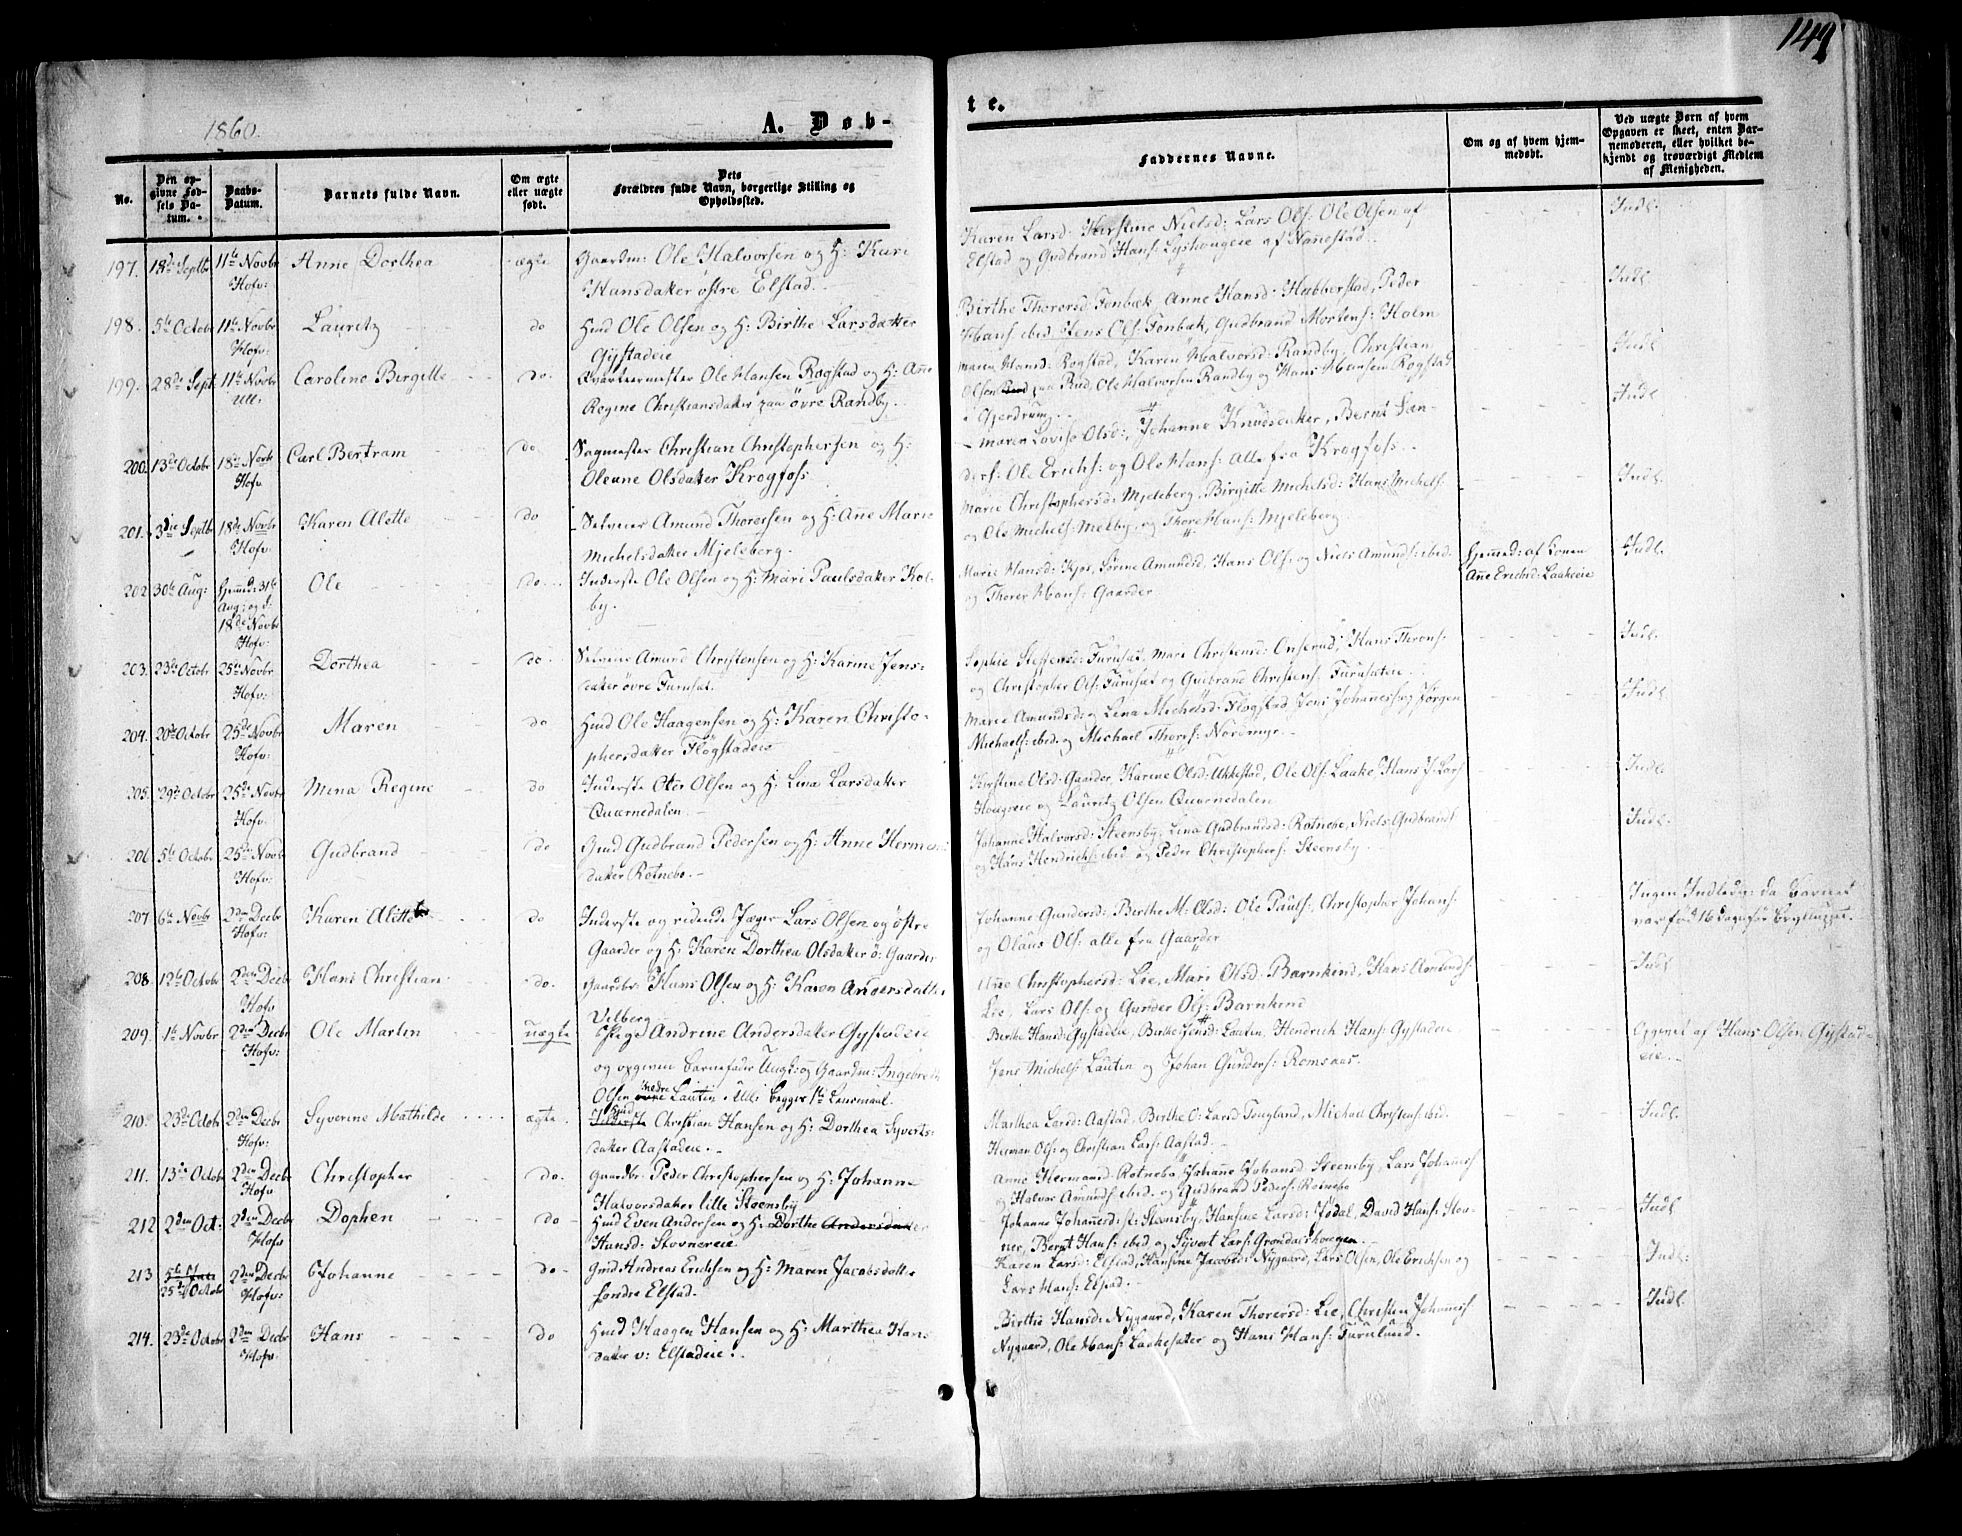 149
1860.
A. Døb-
te.
No.
Den op-
givne Fød-
sels Da-
tum.
Daabs-
Datum.
Barnets fulde Navn.
Om ægte
eller uægte
født.
Dets
Forældres fulde Navn, borgerlige Stilling og
Opholdssted.
Faddernes Navne.
Om og af hvem hjem-
medøbt.
Ved uægte Børn af hvem
Opgaven er skeet, enten Bar-
nemoderen, eller hvilket be-
kjendt og troværdigt Medlem
af Menigheden.
197. 18de Septbr 11te Novbr Hofv: Anne Dorthea ægte Gaardm: Ole Halvorsen og H: Kari
Hansdatter østre Elstad.
Karen Larsd: Kirstine Nielsd: Lars Ols: Ole Olsen af
Elstad og Gudbrand Hans: Lyshougeie af Nannestad.
Indl.
198. 5te Octobr 11te Novbr Hofv: Lauritz do Huusmd Ole Olsen og H: Birthe Larsdatter
Gystadeie
Birthe Thorersd: Fonbæk, Anne Hansd: Habberstad, Peder
Hans: ibid, Jens Ols: Fonbæk, Gudbrand Mortens: Holm
Indl.
199. 28de Sept. 11te Novbr Ull: Caroline Birgitte do. Kvarteermester Ole Hansen Rogstad og H: Anne
Regine Christiansdatter paa øvre Randby.
Maren Hansd: Rogstad, Karen Halvorsd: Randby, Christian
Olsen paa Rud, Ole Halvorsen Randby og Hans Hansen Rogstad
i Gjerdrum.
Indl.
200. 13de Octobr 18de Novbr Hofv Carl Bertram do Sagmester Christian Christophersen og H:
Oleane Olsdatter Krogfoss
Maren Lovise Olsd:, Johanne Knudsdatter, Bernt
Ole Erichs: og Ole Hans: alle fra Krogfoss.
Indl.
201. 3die Septbr 18de Novbr Hofv: Karen Alette do Selveier Amund Thorersen og H: Anne Marie
Michelsdatter Mjeleberg.
Marie Christophersd: Mjeleberg, Birgitte Michelsd: Hans Michels:
og Ole Michels: Melby, og Thore Hans: Mjeleberg
Indl.
202 30te Aug: Hjemmd: 31te Aug: og d: 18de Novbr Hofv: Ole do Inderste Ole Olsen og H: Mari Paulsdatter Kol-
by.
Marie Hansd: Kjos, Sørine Amundsd, Hans Ols: og Niels Amunds: ibid.
og Thorer Hans: Gaarder
Hjemmed: af Konen
Anne Erichsd: Laakeeie
Indl.
203. 23de Octobr 25de Novbr Hofv: Dorthea do Selveier Amund Christensen og H: Karine Jens-
datter øvre Furuset.
Sophie Steffensd: Furuset, Mari Christensd: Onserud, Hans Throns:
og Christopher Ols: Furuset og Gudbrand Christens: Furuseteie
Indl.
204. 20de Octobr 25de Novbr Hofv: Maren do Huusmd Ole Haagensen og H: Karen Christo-
phersdatter Flogstadeie
Marie Amundsd: og Lina Michelsd: Flogstad, Jens Johanes: og Jørgen
Michaels: ibid. og Michael Thores: Nordmyr.
Indl.
205. 29de Octobr 25de Novbr Hofv: Mina Regine do Inderste Olsen og H: Lina Larsdatter
Quærnedalen.
Kirstine Olsd: Gaarder, Karine Olsd: Ukkestad, Ole Ols: Laake, Hans J. Lars:
Hougeeie og Lauritz Olsen Quærnedalen
Indl.
206 5te Octobr 25de Novbr Hofv: Gudbrand do Gmd Gudbrand Pedersen og H: Anne Hermans
datter Rotnebo.
Johanne Halvorsd: Steensby, Lina Gudbrandsd: Rotnebo, Niels Gudbrands:
og Hans Hendrichs: ibid og Peder Christophers: Steensby.
Indl.
207 6te Novbr 2den Decbr Hofv: Karen Alette do Inderste og ridende Jæger Lars Olsen og østre
Gaarder og H: Karen Dorthea Olsdatter ø: Gaarder
Johanne Gundersd: Birthe M: Olsd: Ole Pauls:, Christopher Johans:
og Olaus Ols: alle fra Gaarder
Ingen Indledn: da Barnet
var født 16 Dage før Bryllupet.
208. 12te Octobr 2den Decbr Hofv Hans Christian do. Gaardbr: Hans Olsen og H: Karen Andersdatter
Vilberg
Anne Christophersd: Lie, Mari Olsd: Barnkind, Hans Amunds:
Lie, Lars Ols: og Gunder Ols: Barnkind
Indl.
209. 1te Novbr 2den Decbr Hofv: Ole Martin uægte Pige Andrine Andersdatter Gystadeie
og opgiven Barnefader Ungk: og Gaardm: Ingebret
Olsen øvre nedre Lautin i Ull: begges 1te Leiermaal.
Berthe Hansd: Gystadeie, Birthe Jensd: Lautin, Hendrich Hans: Gystadeie
Jens Michels: Lautin og Johan Gunders: Romsaas.
Opgivet af Hans Olsen Gystad-
eie.
210. 23de Octobr 2den Decbr Hofv: Syverine Mathilde ægte Inderste Huusmd Christian Hansen og H: Dorthea Syverts-
datter Aastadeie.
Marthea Larsd: Aastad, Birthe O: Larsd: Fougland, Michael Christens: ibid.
Herman Ols: og Christian Lars: Aastad.
Indl.
211. 13de Octobr 2den Decbr Hofv Christopher do. Gaardbr: Peder Christophersen og H: Johanne
Halvorsdatter lille Steensby
Anne Hermansd: Rotnebo, Johanne Johansd: Steensby, Lars Johanes:
og Halvor Amunds: ibid. og Gudbrand Peders: Rotnebo
Indl.
212 2den Oct: 2den Decbr Hofv Dophen do Huusmd Even Andersen og H: Dorthe Andersdatter
Hansd: Stovnereie.
Johanne Johannesd: st: Steensby, Hansine Larsd: Jødal, David Hans: Stov-
ner, Bernt Hans: ibid og Syvert Lars: Grøndalshougen.
Indl.
213 5te Juli 25de Octobr 2den Decbr Hofv: Johanne do Gmd Andreas Erichsen og H: Maren Jacobsdatter
søndre Elstad.
Karen Larsd: Elstad, Hansine Jacobsd: Nygaard, Lars Olsen, Ole Erichsen og
Lars Hans: Elstad.
Indl:
214. 23de Octobr 2den Decbr Hofv: Hans do Huusmd Haagen Hansen og H: Marthea Hans
datter v: Elstadeie.
Birthe Hansd: Nygaard, Karen Thorersd: Lie, Christen Johanes:
Nygaard, Ole Hans: Laakesæter og Hans Hans: Furulund.
Indl.